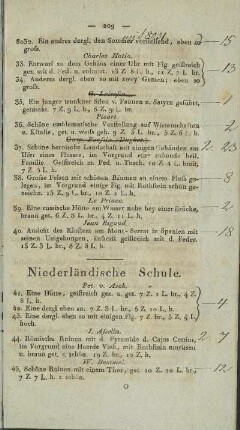 209
8032. Ein andres dergl. den Sommer vorstellend, eben so
gross. 15
Charles Hutin.
33. Entwurf zu dem Gehäus einer Uhr mit Fig. geistreich
gez. mit d. Fed. u. colorirt. 13 Z. 8 L. h., 11 Z. 7 L. br.
34. Anderes dergl. eben so mit zwey Gemen; eben so
gross.
13
35. Ein junger trunkner Silen v. Faunen u. Satyrn geführt,
gemacht. 7 Z. 9 L. h., 6 Z. 6 L. br.
1
Picart.
36. Schöne emblematische Vorstellung auf Wissenschaften
u. Künste, get. u. weiss geh. 7 Z. 5 L. br., 5 Z. h.
4
37. Schöne heroische Landschaft mit einigen Gebäuden am
Ufer eines Flusses, im Vorgrund eine ruhende heil.
Familie. Geistreich m. Fed. u. Tusch.
2 23
38. Große Felsen mit schönen Bäumen an einem Fluß ge-
legen, im Vorgrund einige Fig. mit Rothstein schön ge-
8
Le Prince.
39. Eine russische Hütte am Wasser nahe bey einer Brücke,
braun get. 6 Z. 8 L. br., 4 Z. 11 L. h.
2
40. Ansicht des Klosters am Mont-Serrat in Spanien mit
seinen Umgebungen, äußerst geistreich mit d. Feder.
18
Niederländische Schule.
Pet. v. Asch.
41. Eine Hütte, geistreich gez. u. get. 7 Z. 1 L. br., 4 Z.
8 L. h.
42. Eine dergl. eben so. 7 Z. br., 5 Z. h.
43. Eine dergl. eben so mit einigen Fig. 7 Z. br., 5 Z. 4 L.
hoch.
4
I. Asselin.
44. Römische Ruinen mit d. Pyramide d. Cajus Cestius,
im Vorgrund eine Heerde Vieh, mit Rothstein
u. braun get. s. schön. 19 Z. br., 12 Z. h.
2 7
45. Schöne Ruinen mit einem Thor, get. 10 Z. 2 L. br.,
7 Z. 7 L. h. s. schön.
12
O